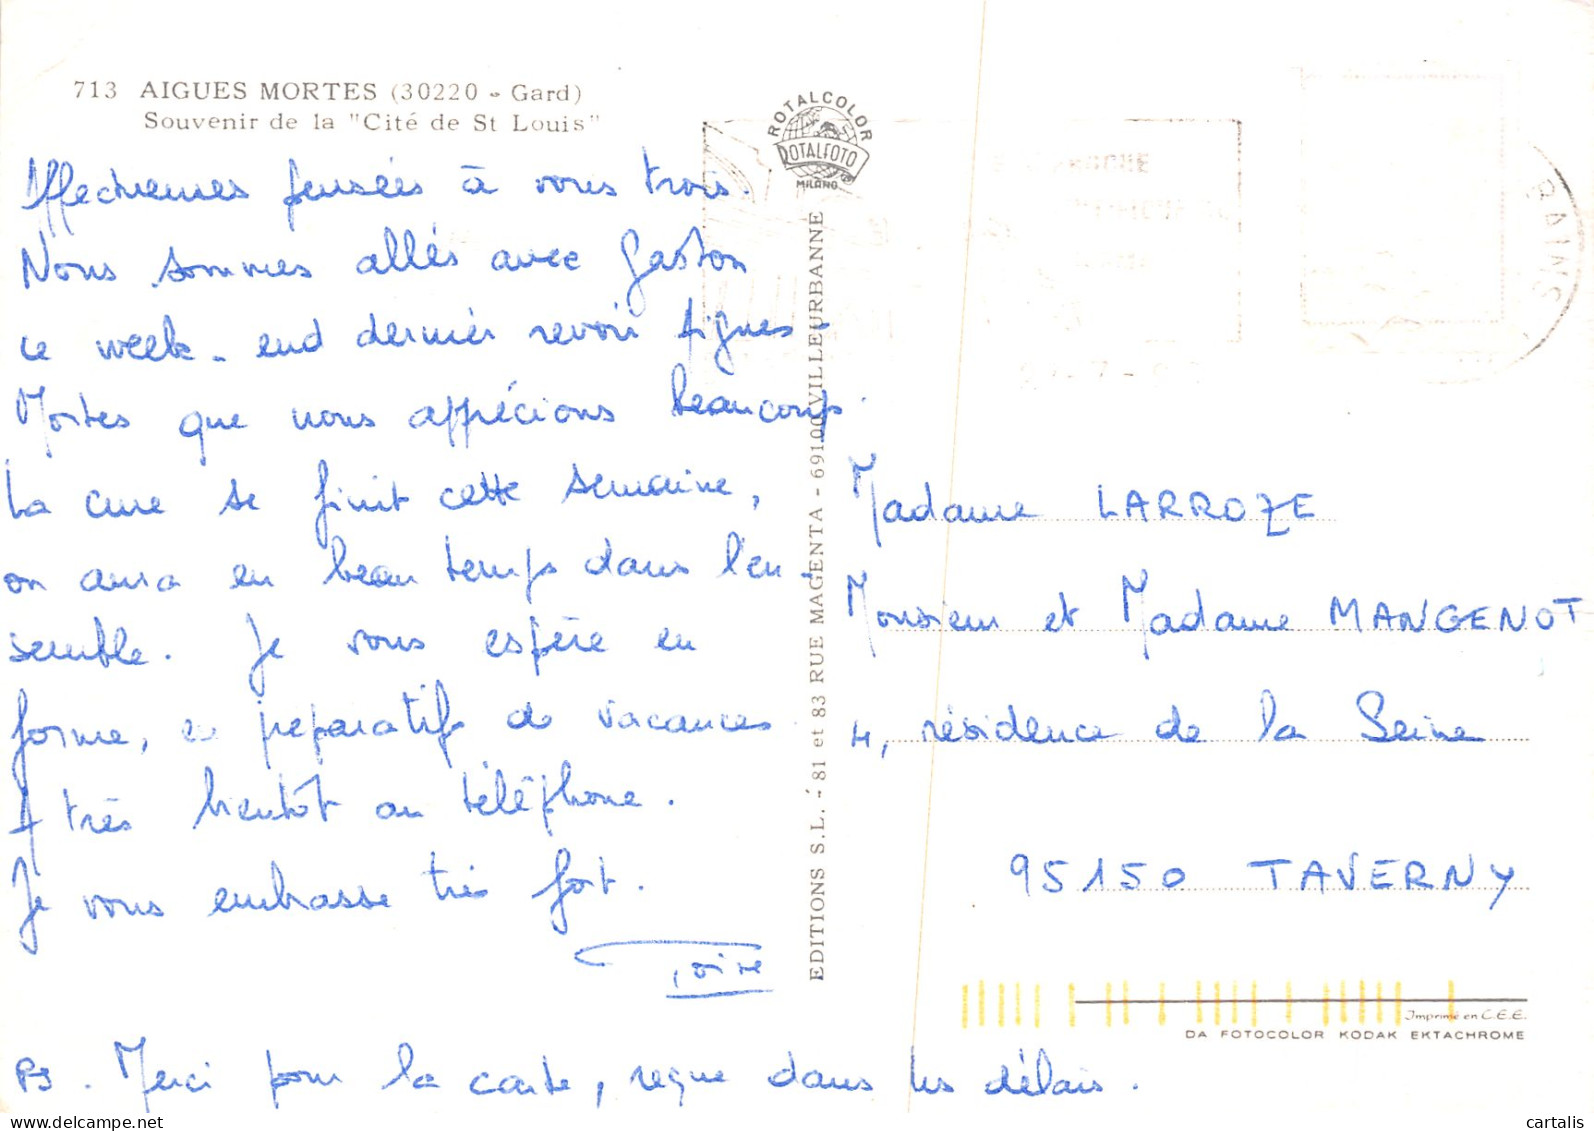 713 AIGUES MORTES (30220 - Gard)
Souvenir de la "Cité de St Louis"
Affectueuses pensées à vous trois.
Nous sommes allés avec Gaston
ce week-end dernier revoir Aigues-
Mortes que nous apprécions beaucoup.
La cure se finit cette semaine,
on aura eu beau temps dans l'en-
semble. Je vous espère en
forme, en préparatifs de vacances.
A très bientôt au téléphone.
Je vous embrasse très fort.
PS. Merci pour la carte, reçue dans les délais.
ROTALCOLOR
ROTALFOTO
MILANO
EDITIONS S.L. - 81 et 83 RUE MAGENTA - 69100 VILLEURBANNE
BAINS
Madame LARROZE
Monsieur et Madame MANGENOT
4, résidence de la Seine
95150 TAVERNY
Imprimé en C.E.E.
DA FOTOCOLOR KODAK EKTACHROME
cartalis
www.delcampe.net